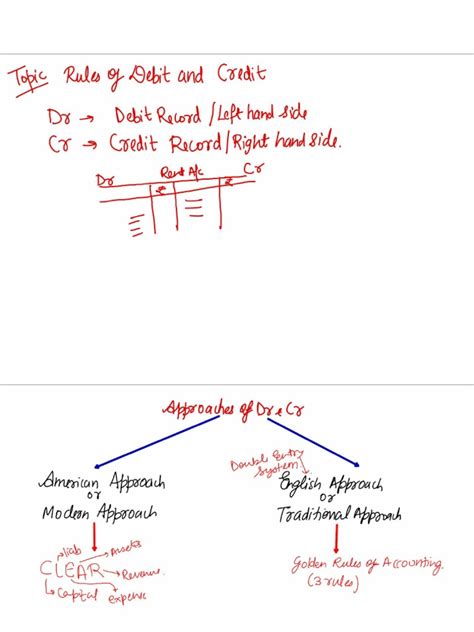 Topic Rules of Debit and Credit
Dr → Debit Record / Left hand side
Cr → Credit Record / Right hand side.
Dr Rent A/c Cr
₹ ₹
Approaches of Dr & Cr
Double Entry
System
American Approach
or
Modern Approach
English Approach
or
Traditional Approach
liab Assets
CLEAR Revenue
Capital expense
Golden Rules of Accounting.
(3 rules)